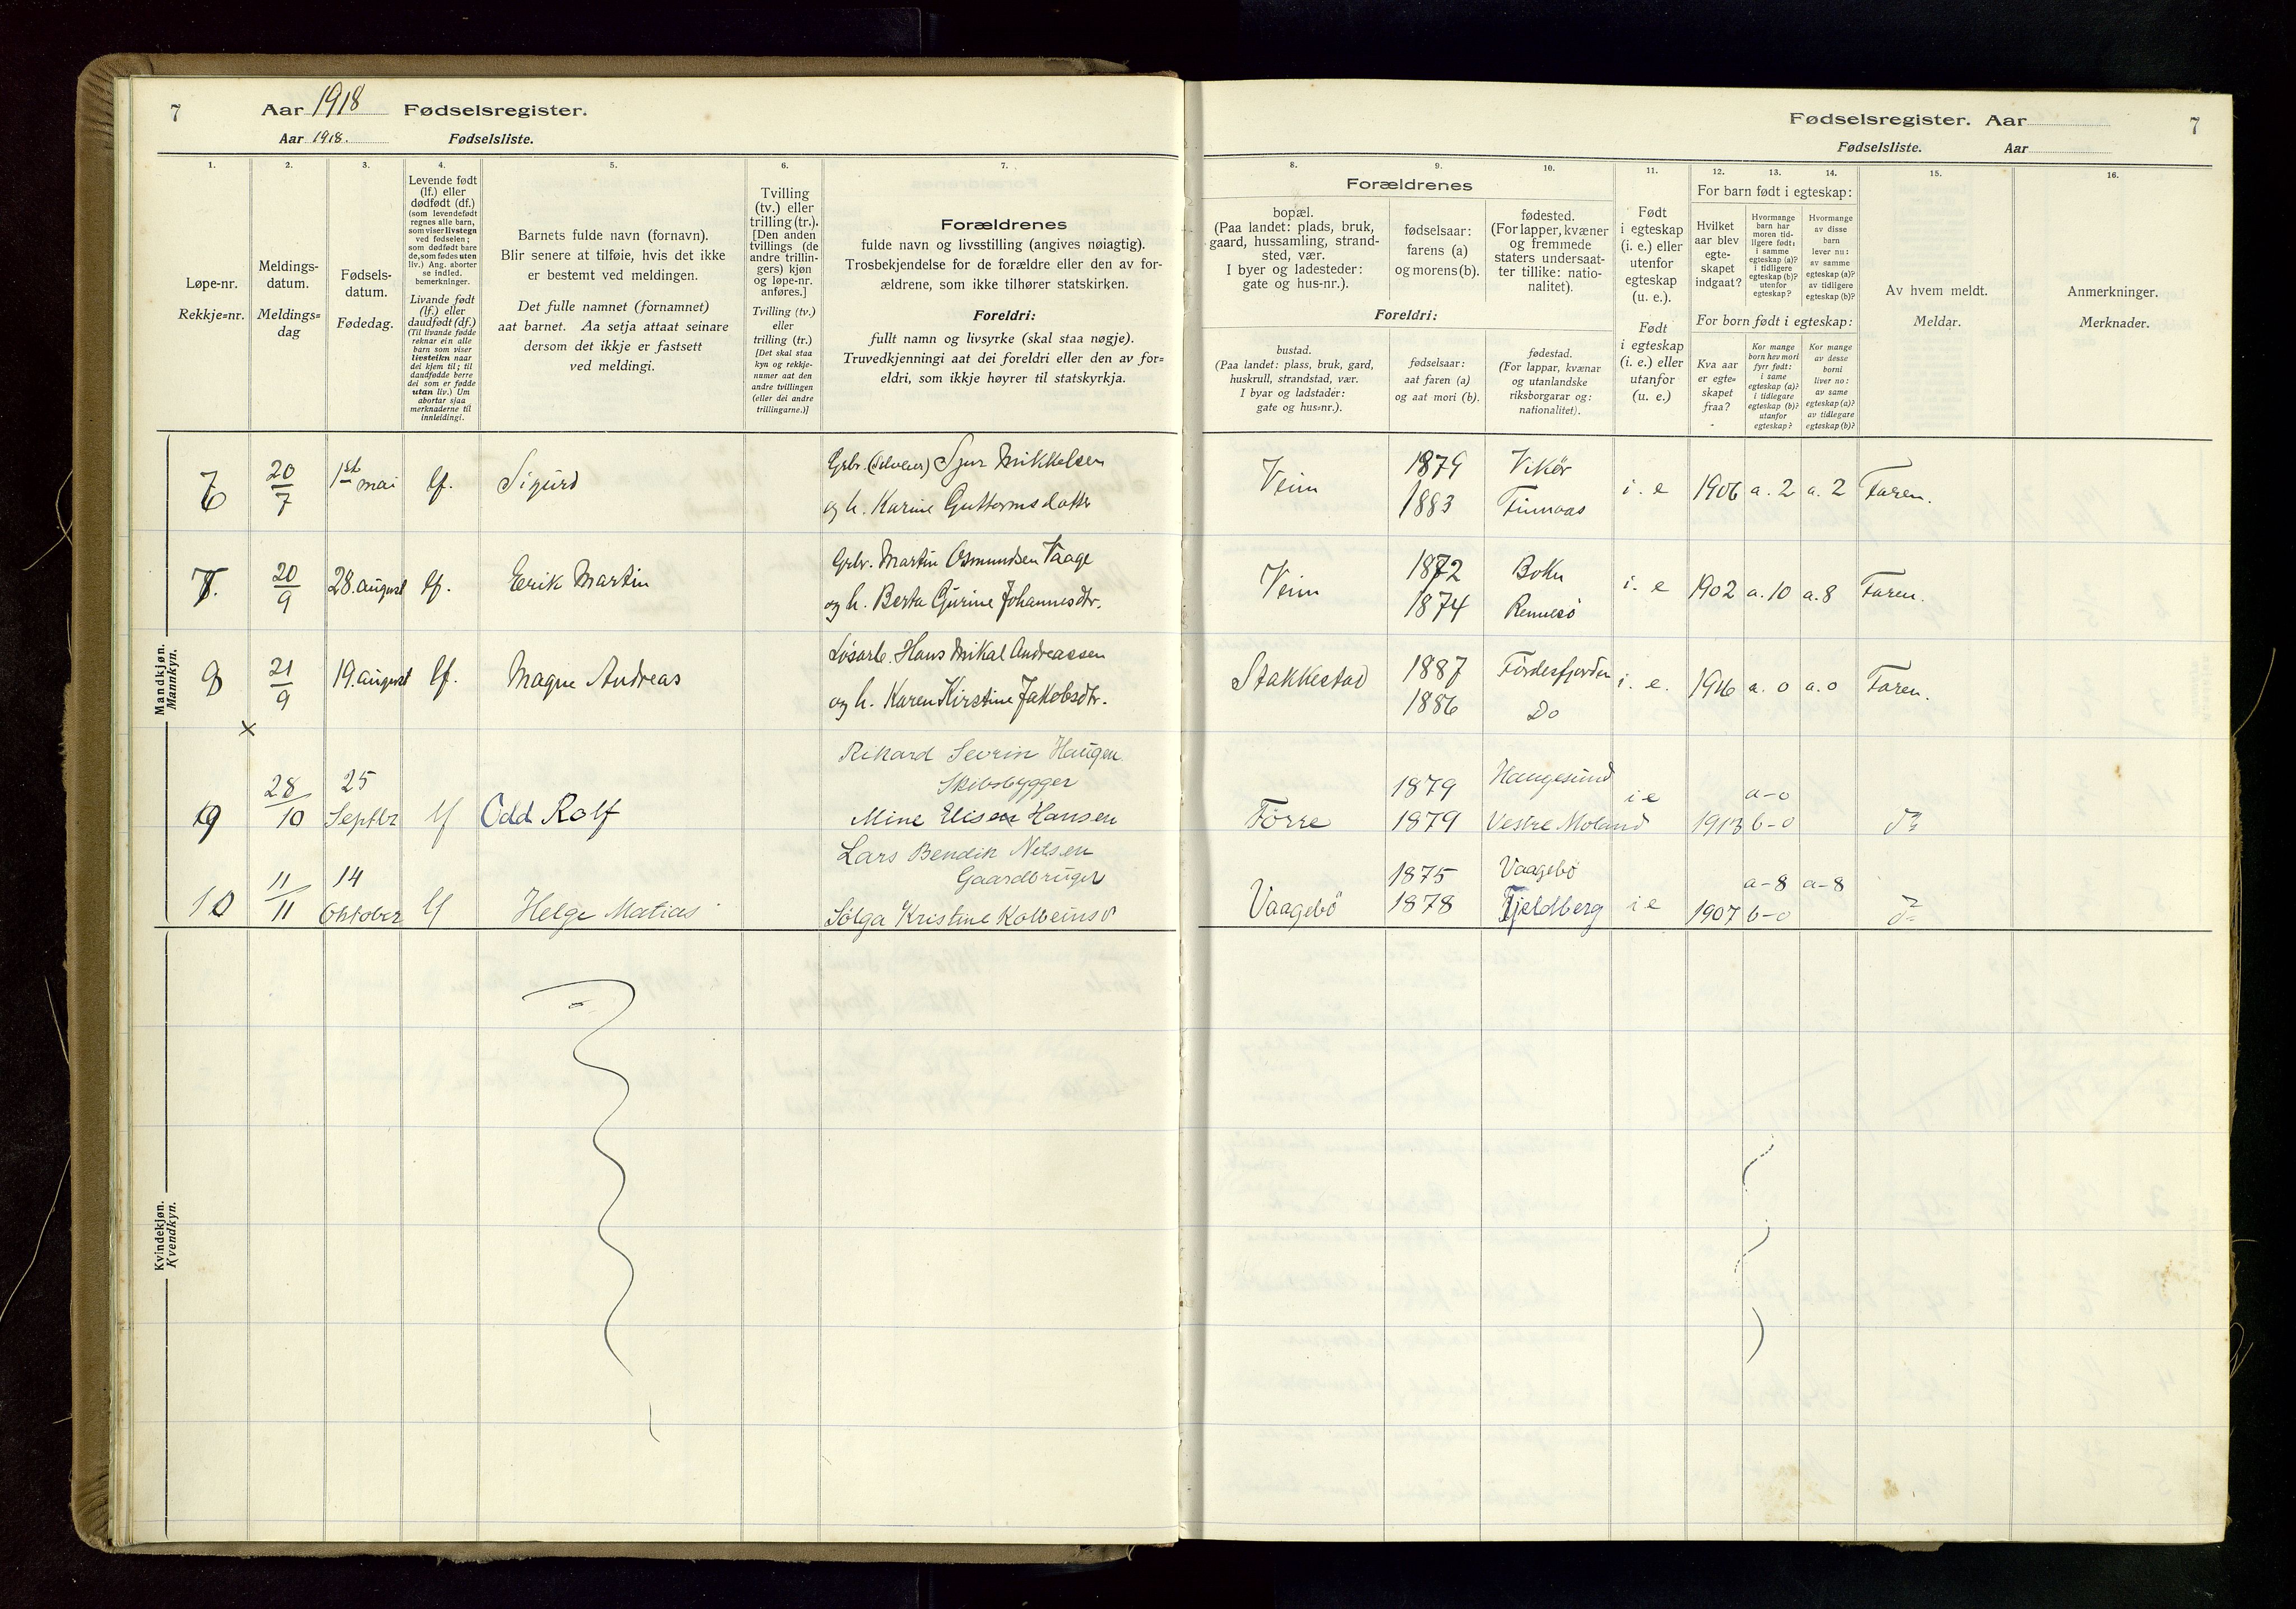 7
Aar 1918 Fødselsregister.
Aar 1918. Fødselsliste.
1.
2.
3.
4.
5.
6.
7.
Løpe-nr.
Rekkje=nr.
Meldings-
datum.
Meldings=
dag
Fødsels-
datum.
Fødedag.
Levende født
(lf.) eller
dødfødt (df.)
(som levendefødt
regnes alle barn,
som viser livstegn
ved fødselen;
som dødfødt bare
de, som fødes uten
liv.) Ang. aborter
se indled.
bemerkninger.
Livande fødd
(lf.) eller
daudfødt (df.)
(Til livande fødde
reknar ein alle
barn som viser
livsteikn naar
dei kjem til; til
daudfødde berre
dei som er fødde
utan liv.) Um
abortar sjaa
merknaderne til
innleidingi.
Barnets fulde navn (fornavn).
Blir senere at tilføie, hvis det ikke
er bestemt ved meldingen.
Det fulle namnet (fornamnet)
aat barnet. Aa setja attaat seinare
dersom det ikkje er fastsett
ved meldingi.
Tvilling
(tv.) eller
trilling (tr.).
[Den anden
tvillings (de
andre trillin-
gers) kjøn
og løpe-nr.
anføres.]
Tvilling (tv.)
eller
trilling (tr.)
[Det skal staa
kyn og rekkje-
numer aat den
andre tvillingen
(eller dei andre
trillingarne.)]
Forældrenes
fulde navn og livsstilling (angives nøiagtig).
Trosbekjendelse for de forældre eller den av for-
ældrene, som ikke tilhører statskirken.
Foreldri:
fullt namn og livsyrke (skal staa nøgje).
Truvedkjenningi aat dei foreldri eller den av for=
eldri, som ikkje høyrer til statskyrkja.
Mandkjøn.
Mannkyn.
6
20/7
1ste mai
lf.
Sigurd
Grbr. (Selveier) Sjur Mikkelsen
og h. Karine Guttormsdatter
7.
20/9
28. august
lf.
Erik Martin
Grbr. Martin Osmundsen Vaage
og h. Berta Gurine Johannesdtr.
8
21/9
19. august
lf.
Magne Andreas
Løsarb. Hans Mikal Andreassen
og h. Karen Kirstine Jakobsdtr.
×
9
28/10
25
Septbr
lf
Odd Rolf
Rikard Sevrin Haugen
Skibsbygger
Mine Elise Hansen
10
11/11
14
Oktober
lf
Helge Matias
Lars Bendik Nilsen
Gaardbruger
Sølga Kristine Kolbeinsd
Kvindekjøn.
Kvendkyn.
Fødselsregister. Aar
7
Fødselsliste. Aar
8.
9.
10.
11.
12.
13.
14.
15.
16.
Forældrenes
bopæl.
(Paa landet: plads, bruk,
gaard, hussamling, strand-
sted, vær.
I byer og ladesteder:
gate og hus-nr.).
fødselsaar:
farens (a)
og morens (b).
fødested.
(For lapper, kvæner
og fremmede
staters undersaat-
ter tillike: natio-
nalitet).
Foreldri:
bustad.
(Paa landet: plass, bruk, gard,
huskrull, strandstad, vær.
I byar og ladstader:
gate og hus=nr.).
fødselsaar:
aat faren (a)
og aat mori (b).
fødestad.
(For lappar, kvænar
og utanlandske
riksborgarar og:
nationalitet).
Født
i egteskap
(i. e.) eller
utenfor
egteskap
(u. e.).
Født
i egteskap
(i. e.) eller
utanfor
(u. e.)
For barn født i egteskap:
Hvilket
aar blev
egte-
skapet
indgaat?
Hvormange
barn har
moren tid-
ligere født:
i samme
egteskap (a)?
i tidligere
egteskap (b)?
utenfor
egteskap?
Hvormange
av disse
barn
lever nu:
av samme
egteskap (a)?
av tidligere
egteskap (b)?
For born født i egteskap:
Kva aar
er egte=
skapet
fraa?
Kor mange
born hev mori
fyrr født:
i same
egteskap (a)?
i tidlegare
egteskap (b)?
utanfor
egteskap?
Kor mange
av desse
borni
liver no:
av same
egteskap (a)?
av tidlegare
egteskap (b)?
Av hvem meldt.
Meldar.
Anmerkninger.
Merknader.
Veim
1879
1883
Vikør
Finnaas
i. e
1906
a. 2
a. 2
Faren.
Veim
1872
1874
Bokn
Rennesø
i. e
1902
a. 10
a. 8
Faren.
Stakkestad
1887
1886
Førdesfjorden
Do
i. e.
1916
a. 0
a. 0
Faren.
Førre
1879
1879
Haugesund
Vestre Moland
i e
1913
a-0
b-0
do
Vaagebø
1875
1878
Vaagebø
Fjeldberg
i e
1907
a-8
b-0
a-8
do